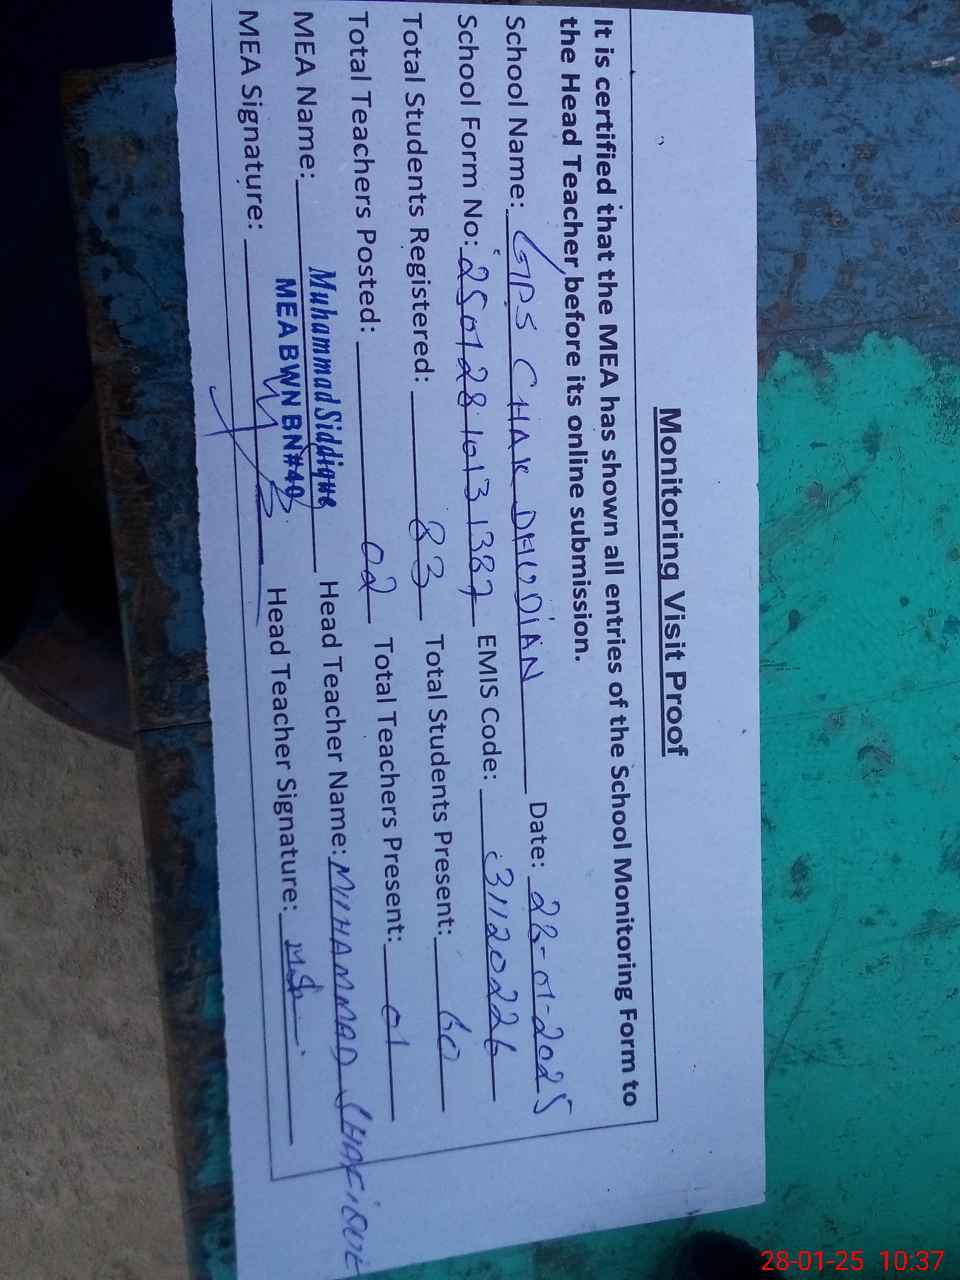 Monitoring Visit Proof
It is certified that the MEA has shown all entries of the School Monitoring Form to
the Head Teacher before its online submission.
School Name: GPS CHAK DHUDIAN Date: 28-01-2025
School Form No: 25012810131387 EMIS Code: 31120226
Total Students Registered: 83 Total Students Present: 60
Total Teachers Posted: 02 Total Teachers Present: 01
MEA Name: Muhammad Siddique Head Teacher Name: MUHAMMAD SHAFIQUE
MEA BWN BN#49
MEA Signature: Head Teacher Signature:
28-01-25 10:37